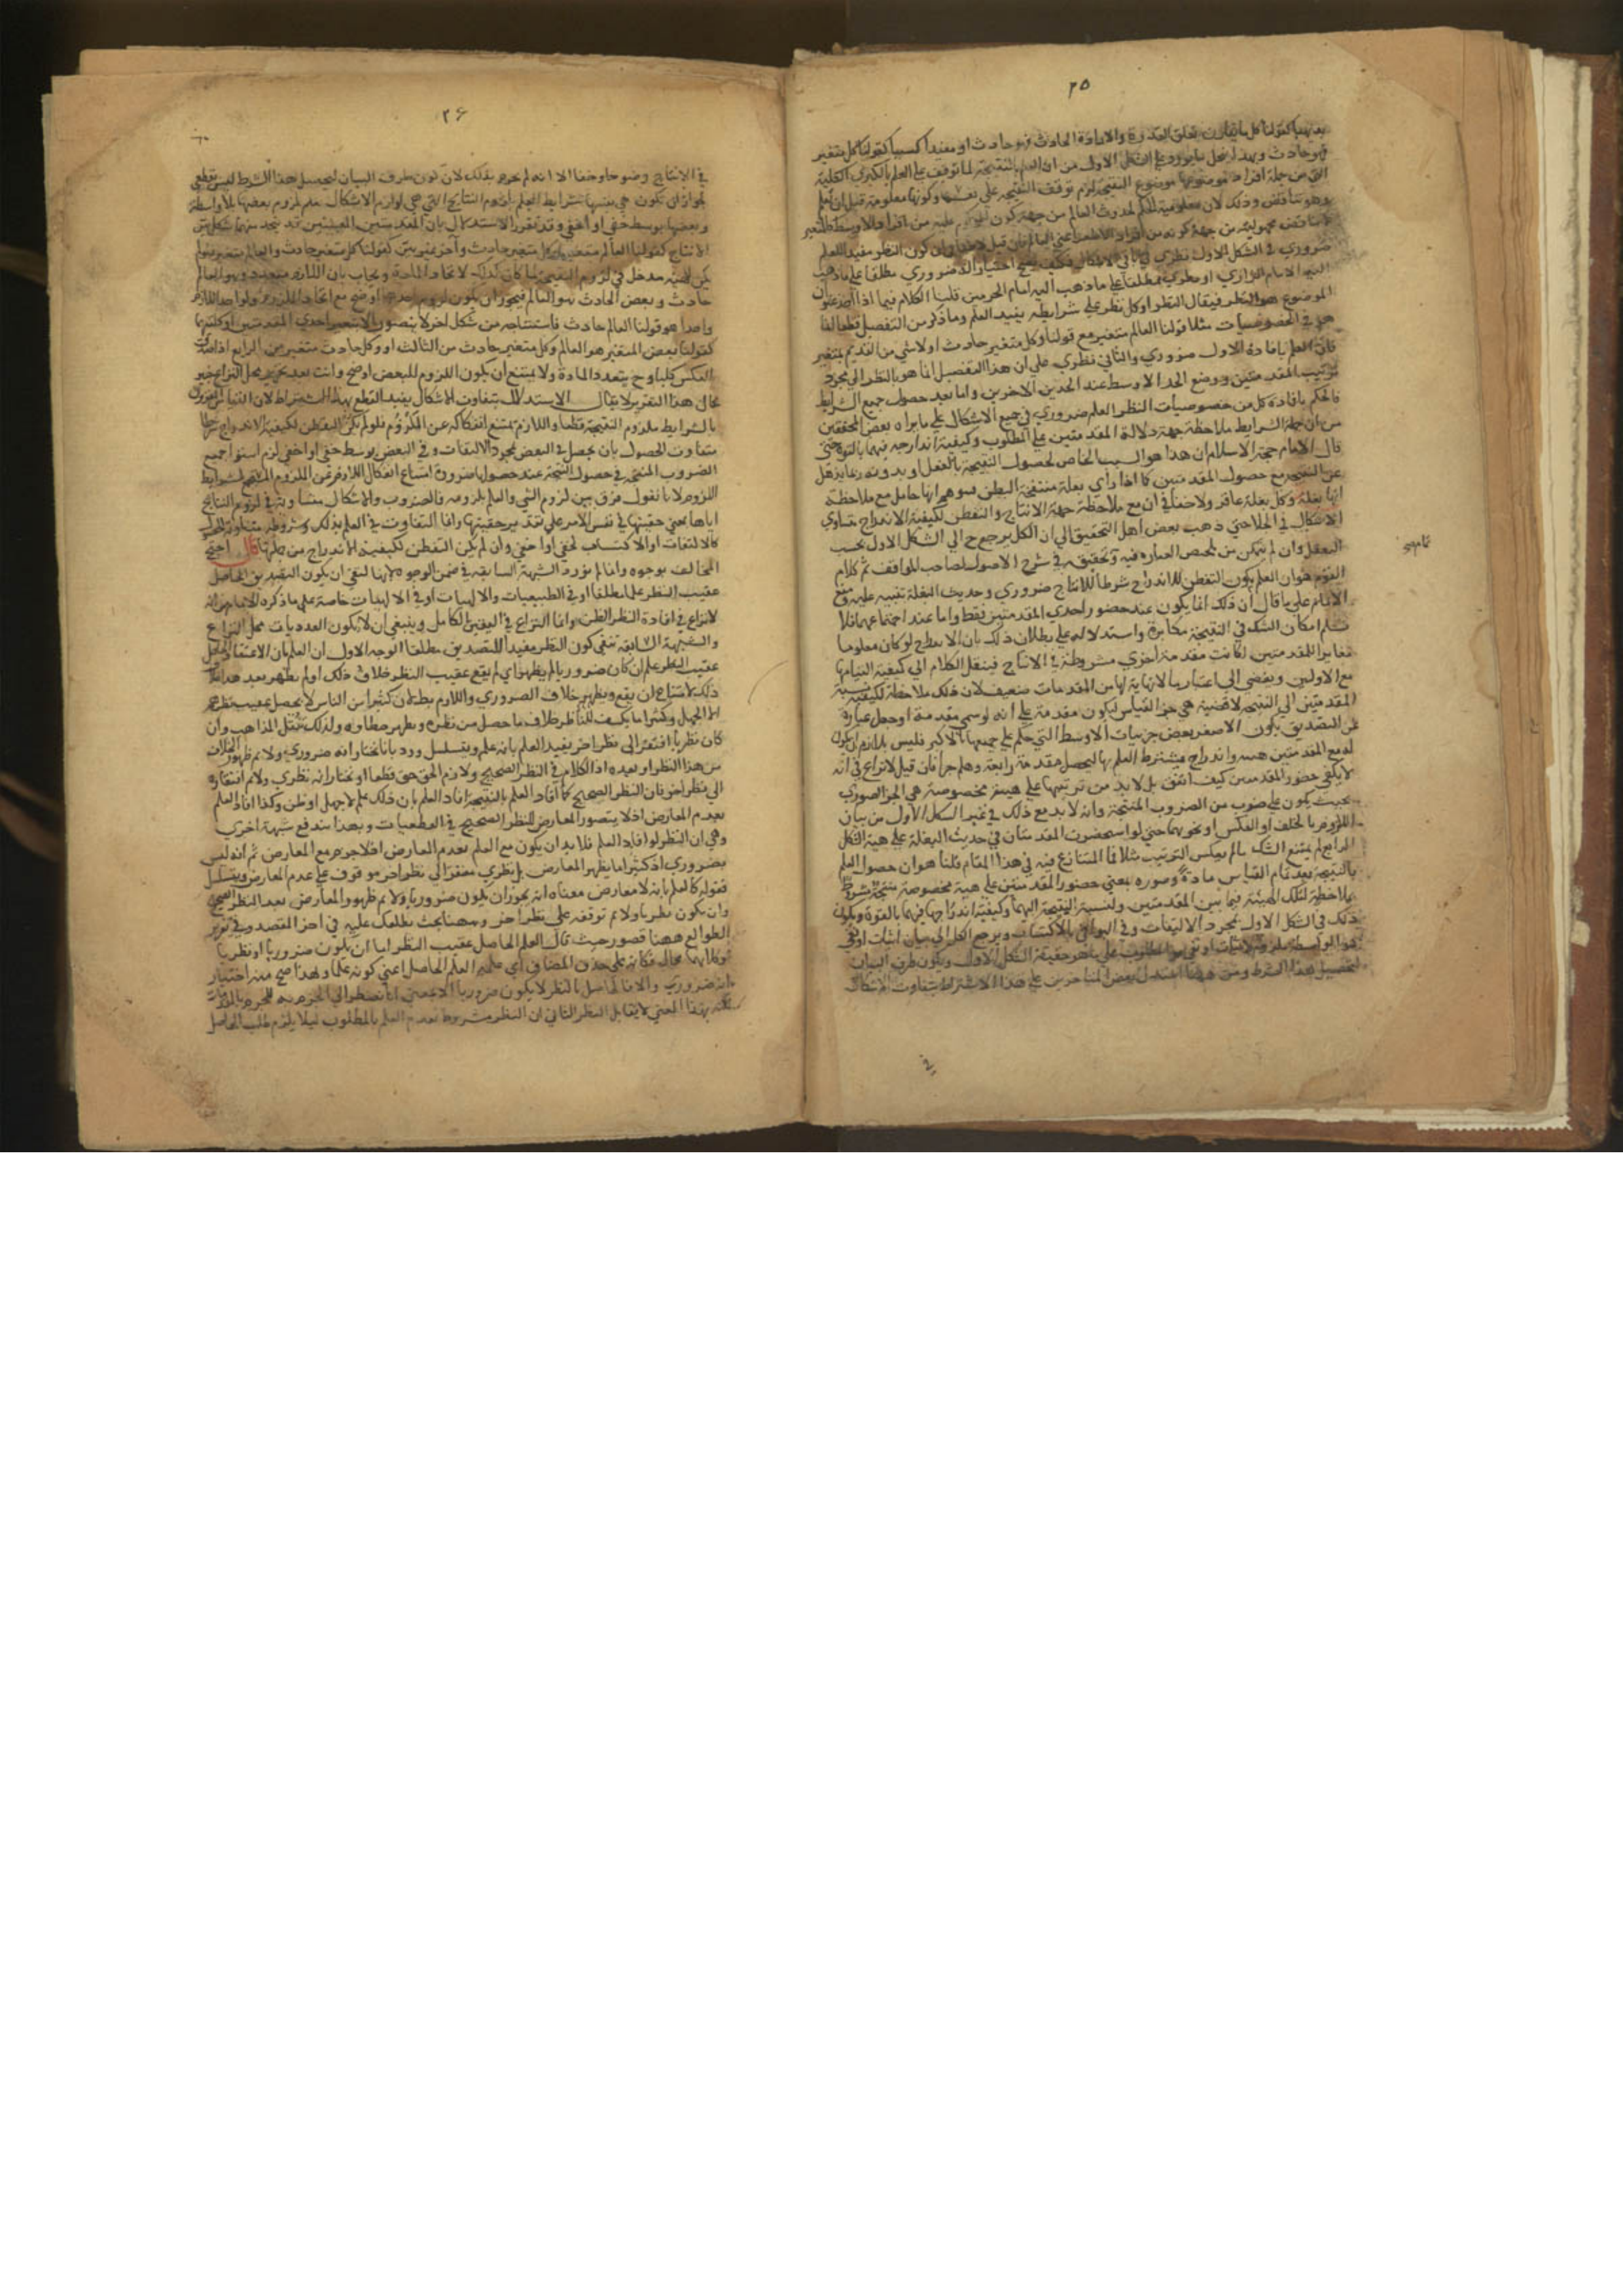 ٢٥
بعينها كقولنا كل ما يقارن تعلق القدرة والارادة الحادث فهو حادث او مفيدا كسبيا كقولنا كل متغير
فهو حادث وبهذا ينحل ما يورد على الشكل الاول من ان العلم بالنتيجة لما توقف على العلم بالكبرى الكلية
التي من جملة افراد موضوعها موضوع النتيجة لزم توقف النتيجة على نفسها وكونها معلومة قبل ان تعلم
وهو تناقض وذلك لان معلومية الحكم لحدوث العالم من جهة كونه من افراد الاوسط كالمتغير
لا يناقض مجهوليته من جهة كونه من افراد الاصغر اعني العالم فان قيل
ضروري في الشكل الاول نظري في باقي الاشكال فكيف يصح اختيار انه ضروري مطلقا على ما ذهب
اليه الامام الرازي او نظري مطلقا على ما ذهب اليه امام الحرمين قلنا الكلام فيما اذا اخذ عنوان
الموضوع هو النظر فيقال النظر او كل نظر على شرايطه يفيد العلم وما ذكر من التفصيل قطعا انما
هو في الخصوصيات مثلا قولنا العالم متغير مع قولنا وكل متغير حادث او لا شي من القديم بمتغير
فان العلم بافادة الاول ضروري والثاني نظري على ان هذا التفصيل انما هو بالنظر الى مجرد
ترتيب المقدمتين ووضع الحد الاوسط عند الحدين الاخرين واما بعد حصول جميع الشرايط
فالحكم بافادة كل من خصوصيات النظر العلم ضروري في جميع الاشكال على ما يراه بعض المحققين
من ان جملة الشرايط ملاحظة جهة دلالة المقدمتين على المطلوب وكيفية اندراجه فيهما بالقوة حتى
قال الامام حجة الاسلام ان هذا هو السبب الخاص لحصول النتيجة بالفعل وبدونه ربما يذهل
عن النتيجة مع حصول المقدمتين كما اذا رأى بغلة منتفخة البطن فتوهم انها حامل مع ملاحظة
انها بغلة وكل بغلة عاقر ولا خفا في ان مع ملاحظة جهة الانتاج والتفطن لكيفية الاندراج تتساوى
الاشكال في الجلا حتى ذهب بعض اهل التحقيق الى ان الكل يرجع ح الى الشكل الاول بحسب
التعقل وان لم يتمكن من تلخيص العبارة فيه وتحقيقه في شرح الاصول لصاحب المواقف ثم كلام
القوم هو ان العلم بكون التفطن للاندراج شرطا للانتاج ضروري وحديث البغلة تنبيه عليه ومنع
الامام على ما قال ان ذلك انما يكون عند حضور احدى المقدمتين فقط واما عند اجتماعهما فلا
نسلم امكان الشك في النتيجة مكابرة واستدلاله على بطلان ذلك بان الاندراج لو كان معلوما
مغايرا للمقدمتين لكانت مقدمة اخرى مشروطة في الانتاج فينقل الكلام الى كيفية التيامها
مع الاوليين ويفضي الى اعتبار ما لا نهاية لها من المقدمات ضعيف لان ذلك ملاحظة لكيفية نسبة
المقدمتين الى النتيجة لا قضية هي جزا القياس ليكون مقدمة على انه لو سمي مقدمة او جعل عبارة
عن التصديق بكون الاصغر بعض جزييات الاوسط التي حكم على جميعها بالاكبر فليس بلازم ان يكون
له مع المقدمتين هيية واندراج يشترط العلم بها ليحصل مقدمة رابعة وهلم جرا فان قيل لا نزاع في انه
لا يكفي حضور المقدمتين كيف اتفق بل لا بد من ترتيبها على هيية مخصوصة هي الجزا الصوري
بحيث يكون على ضرب من الضروب المنتجة وانه لا بد مع ذلك في غير الشكل الاول من بيان
اللزوم بالخلف او العكس او نحوهما حتى لو استحضرت المقدمتان في حديث البغلة على هيية الشكل
الرابع لم يمتنع الشك ما لم يعكس الترتيب مثلا فما المتنازع فيه في هذا المقام قلنا هو ان حصول العلم
بالنتيجة بعد تمام القياس مادة وصورة بمعنى حضور المقدمتين على هيية مخصوصة منتجة مشروط
بملاحظة لتلك الهيية فيما بين المقدمتين ولنسبة النتيجة اليهما وكيفية اندراجها فيهما بالقوة ويكون
ذلك في الشكل الاول بمجرد الالتفات وفي البواقي بالاكتساب ويرجع الكل الى بيان اثبات او نفي
لتحصيل هذا الشرط ومن ههنا استدل بعض المتاخرين على هذا الاشتراط بتفاوت الاشكال
في
٢٦
في الانتاج وضوحا وخفا الا انه لم يجزم بذلك لان كون طرق البيان لتحصيل هذا الشرط ليس بقطعي
لجواز ان تكون هي نفسها شرايط العلم بلزوم النتايج التي هي لوازم الاشكال يعلم لزوم بعضها بلا واسطة
وبعضها بوسط خفي او اخفى وقد تقرر الاستدلال بان المقدمتين المعينتين قد يتحد منهما شكل بين
الانتاج كقولنا العالم متغير وكل متغير حادث وآخر غير بين كقولنا كل متغير حادث والعالم متغير فلو لم
يكن للهيية مدخل في لزوم النتيجة لما كان كذلك لاتحاد المادة ويجاب بان اللازم متعدد وهو العالم
حادث وبعض الحادث هو العالم فيجوز ان يكون لزوم احدهما اوضح مع اتحاد الملزوم ولو اخذ اللازم
واحدا هو قولنا العالم حادث فاستنتاجه من شكل اخر لا يتصور الا بتغيير احدى المقدمتين او كلتيهما
كقولنا بعض المتغير هو العالم وكل متغير حادث من الثالث او وكل حادث متغير من الرابع اذا صدق
العكس كليا وح يتعدد المادة ولا يمتنع ان يكون اللزوم للبعض اوضح وانت بعد تحرير محل النزاع خبير
بحال هذا التقرير لا يقال الاستدلال بتفاوت الاشكال يفيد القطع بهذا الاشتراط لان القياس المقرون
بالشرايط ملزوم النتيجة قطعا واللازم يمتنع انفكاكه عن الملزوم فلو لم يكن التفطن لكيفية الاندراج شرطا
متفاوت الحصول بان يحصل في البعض بمجرد الالتفات وفي البعض بوسط خفي او اخفى لزم استوا جميع
الضروب المنتجة في حصول النتيجة عند حصولها ضرورة امتناع انفكاك اللازم عن الملزوم المستجمع لشرايط
اللزوم لانا نقول فرق بين لزوم الشي والعلم بلزومه فالضروب والاشكال متساوية في لزوم النتايج
اياها بمعنى حقيتها في نفس الامر على تقدير حقيتها وانما التفاوت في العلم بذلك وشروطه متفاوتة الحصول
كالالتفات او الاكتساب لخفي او اخفى وان لم يكن التفطن لكيفية الاندراج من جملتها قال احتج
المخالف بوجوه وانما لم يورد الشبهة السابقة في ضمن الوجوه لانها لنفي ان يكون التصديق الحاصل
عقيب النظر علما مطلقا او في الطبيعيات والالهيات او في الالهيات خاصة على ما ذكره الامام من انه
لا نزاع في افادة النظر الظن وانما النزاع في اليقين الكامل وينبغي ان لا يكون العدديات محل النزاع
والشبهة السابقة تنفي كون النظر مفيدا للتصديق مطلقا الوجه الاول ان العلم بان الاعتقاد الحاصل
عقيب النظر علم ان كان ضروريا لم يظهر اي لم يقع عقيب النظر خلاف ذلك او لم يظهر بعد هذا خلاف
ذلك لامتناع ان يقع ويظهر خلاف الضروري واللازم بط لان كثيرا من الناس لا يحصل عقيب نظرهم
الا الجهل وكثيرا ما يكشف للناظر خلاف ما حصل من نظره ويظهر خطاوه ولذلك تنقل المذاهب وان
كان نظريا افتقر الى نظر اخر يفيد العلم بانه علم ويتسلسل ورد بانا نختار انه ضروري ولا نم ظهور الخلاف
من هذا النظر او بعده اذ الكلام في النظر الصحيح ولازم الحق حق قطعا او نختار انه نظري ولا نم افتقاره
الى نظر اخر فان النظر الصحيح كما افاد العلم بالنتيجة افاد العلم بان ذلك علم لا جهل او ظن وكذا افاد العلم
بعدم المعارض اذ لا يتصور المعارض للنظر الصحيح في القطعيات وبهذا تندفع شبهة اخرى
وهي ان النظر لو افاد العلم فلا بد ان يكون مع العلم بعدم المعارض اذ لا جزم مع المعارض ثم انه ليس
بضروري اذ كثيرا ما يظهر المعارض بل نظري مفتقر الى نظر اخر موقوف على عدم المعارض ويتسلسل
فقوله كالعلم بانه لا معارض معناه انه يجوز ان يكون ضروريا ولا نم ظهور المعارض بعد النظر الصحيح
وان يكون نظريا ولا نم توقفه على نظر اخر وههنا بحث يطلعك عليه في اخر المقصد وفي تقرير
الطوالع ههنا قصور حيث قال العلم الحاصل عقيب النظر اما ان يكون ضروريا او نظريا
وكلاهما محال فكانه على حذف المضاف اي علمية العلم الحاصل اعني كونه علما ولهذا صح منه اختيار
انه ضروري والا فالحاصل بالنظر لا يكون ضروريا الا بمعنى انا نضطر الى الجزم به للجزم بالمقدمات
لكنه بهذا المعنى لا يقابل النظر الثاني ان النظر مشروط بعدم العلم بالمطلوب ليلا يلزم طلب الحاصل